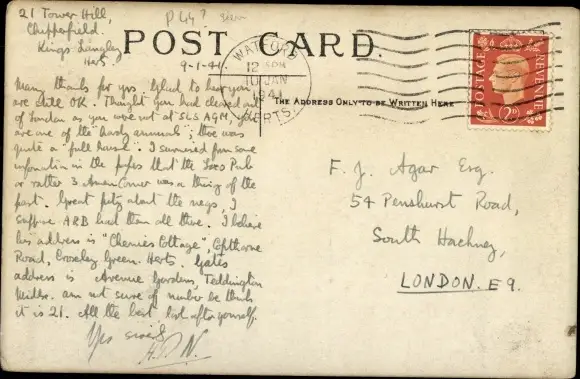 21 Tower Hill,
Chipperfield.
Kings Langley
Herts
P 44?
9-1-41
POST CARD.
THE ADDRESS ONLY TO BE WRITTEN HERE
WATFORD
10 JAN
1941
HERTS.
POSTAGE
REVENUE
2D
Many thanks for yrs. Glad to hear you
are still OK. Thought you had cleared out
of London as you were not at SLS AGM, you
are one of the "hardy annuals"; there was
quite a "full house". I surmised from some
information in the papers that the Leos Pub
or rather 3 Corner was a thing of the
past. Great pity about the negs, I
suppose ARB had them all there. I believe
his address is "Chenies Cottage",
Road, Croxley Green. Herts. Yates
address is Avenue Gardens, Teddington
Middx. am not sure of number but think
it is 21. All the best, look after yourself.
Yrs
F. J. Agar Esq.
54 Penshurst Road,
South Hackney,
LONDON. E9.